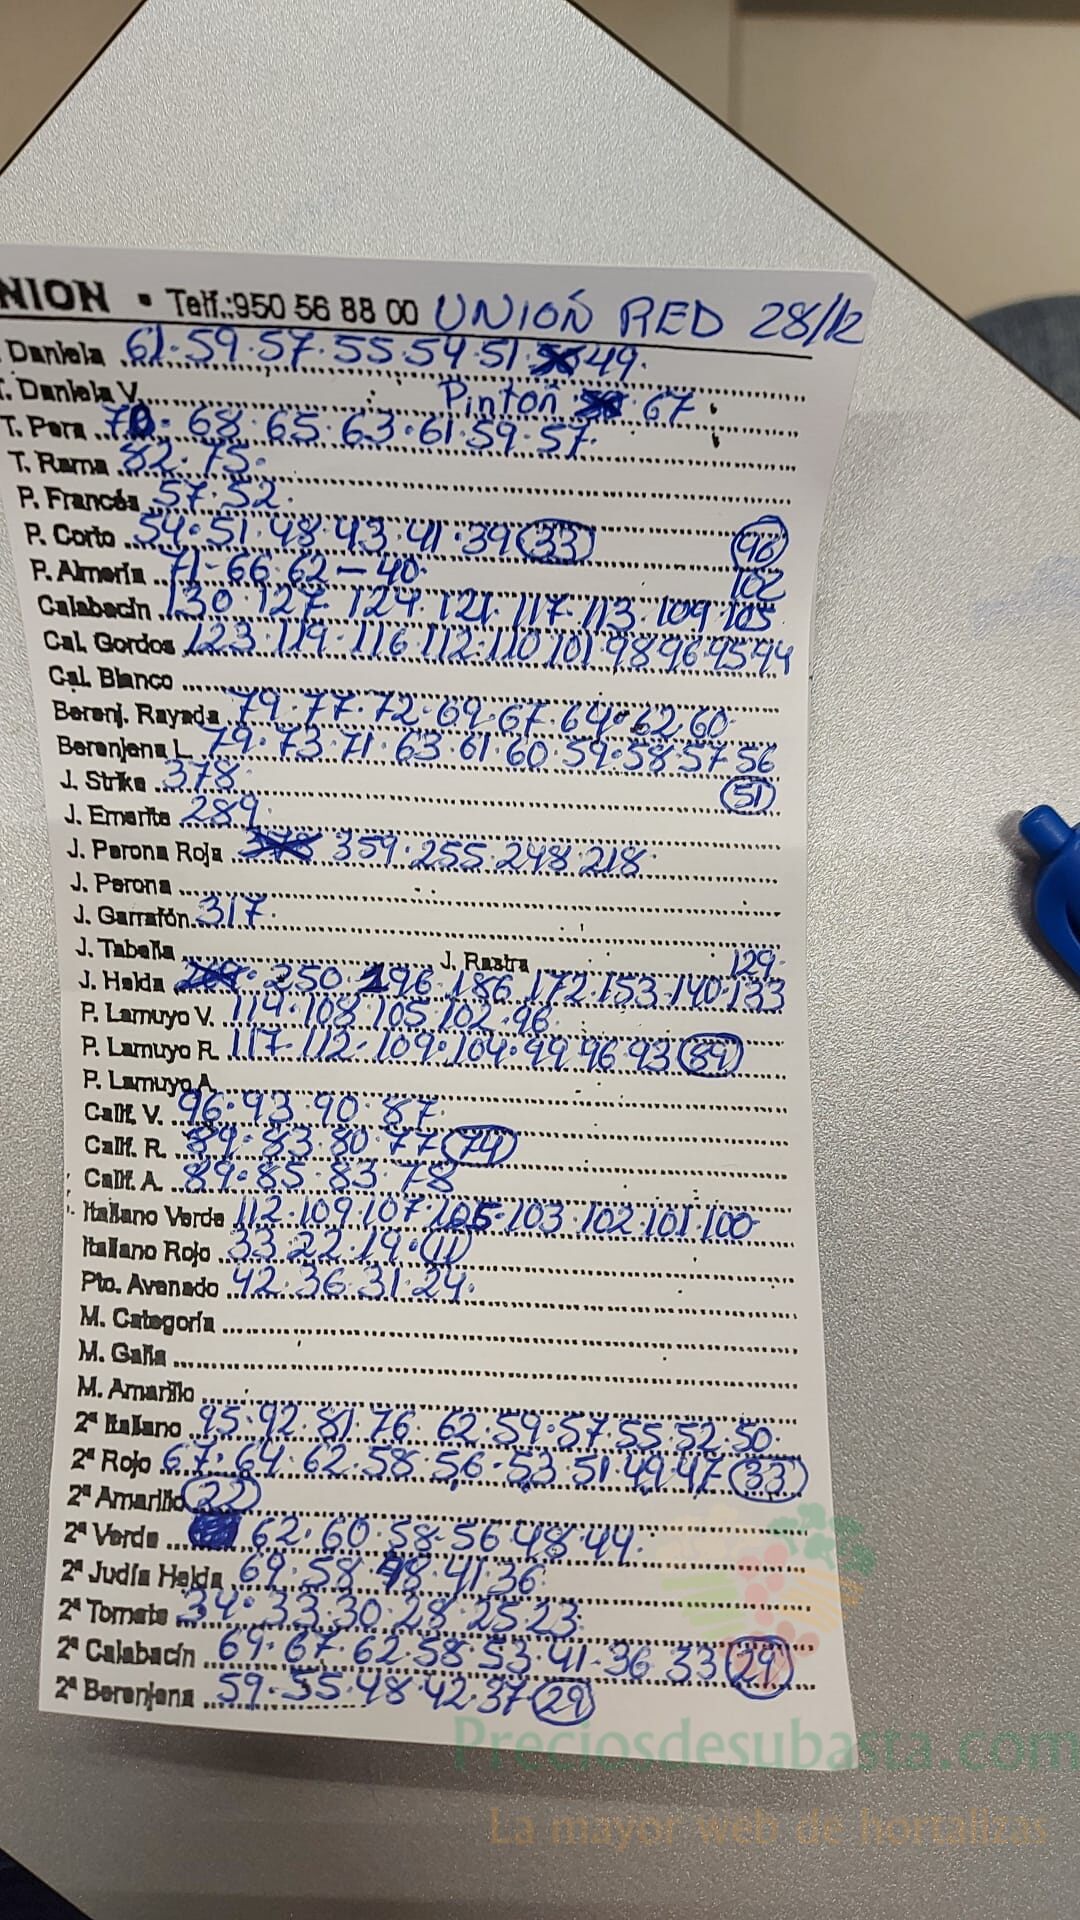 NION • Telf.:950 56 88 00 UNIÓN RED 28/12
Daniela 61·59·57·55·54·51·49·
T. Daniela V. Pintón 67
T. Pera 70·68·65·63·61·59·57·
T. Rama 82·75·
P. Francés 57·52·
P. Corto 54·51·48·43·41·39 (33) (96)
P. Almería 71-66·62-40· 102
Calabacín 130·127·124·121·117·113·109·105
Cal. Gordos 123·119·116·112·110·101·98·96·95·94
Cal. Blanco
Berenj. Rayada 79·77·72·69·67·64·62·60
Berenjena L. 79·73·71·63·61·60·59·58·57·56
J. Strike 378 (51)
J. Emerite 289
J. Perona Roja 378 359·255·248·218
J. Perona
J. Garrafón 317·
J. Tabella J. Rastra 129·
J. Helda 250·196·186·172·153·140·133
P. Lamuyo V. 114·108·105·102·96
P. Lamuyo R. 117·112·109·104·99·96·93 (89)
P. Lamuyo A.
Calif. V. 96·93·90·87
Calif. R. 89·83·80·77 (74)
Calif. A. 89·85·83·78
Italiano Verde 112·109·107·105·103·102·101·100
Italiano Rojo 33·22·19·(11)
Pto. Avenado 42·36·31·24·
M. Categoría
M. Galia
M. Amarillo
2ª Italiano 95·92·81·76·62·59·57·55·52·50·
2ª Rojo 67·64·62·58·56·53·51·49·47 (33)
2ª Amarillo (22)
2ª Verde 62·60·58·56·48·44·
2ª Judía Helda 69·58·48·41·36
2ª Tomate 34·33·30·28·25·23·
2ª Calabacín 69·67·62·58·53·41·36·33 (29)
2ª Berenjena 59·55·48·42·37·(29)
Preciosdesubasta.com
La mayor web de hortalizas